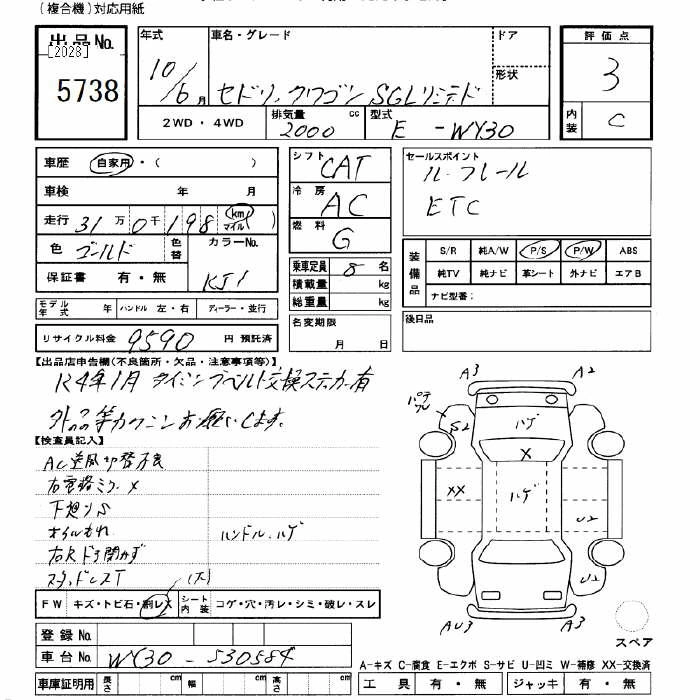 (複合機)対応用紙
出品No.
[2028]
5738
年式
10/6月
車名・グレード
セドリックワゴン SGLリミテド
ドア
形状
評価点
3
内装 C
2WD・4WD
排気量 2000 cc
型式 E-WY30
車歴 自家用・( )
車検 年 月
走行 31万0千198 km マイル( )
色 ゴールド 色替
カラーNo. KJ1
保証書 有・無
モデル年式 年 ハンドル 左・右 ディーラー・並行
リサイクル料金 9590 円 預託済
シフト CAT
冷房 AC
燃料 G
乗車定員 8 名
積載量 kg
総重量 kg
名変期限 月 日
セールスポイント
ル-フレール
ETC
装備品
S/R 純A/W P/S P/W ABS
純TV 純ナビ 革シート 外ナビ エアB
ナビ型番:
後日品
【出品店申告欄(不良箇所・欠品・注意事項等)】
R4年1月 タイミングベルト交換ステッカー有
外品等カクニンお願いします。
【検査員記入】
AC送風切替不良
右電格ミラー×
下廻りS
オイルもれ
ハンドル、ハゲ
右Rドア開かず
スタッドレスT
(大)
FW キズ・トビ石・割レ大
シート内装 コゲ・穴・汚レ・シミ・破レ・スレ
登録No.
車台No. WY30-530584
車庫証明用 長さ cm 幅 cm 高さ cm
A3 A2
S2 ハゲ
X
XX ハゲ U2
U2
AU3 A3
スペア
A-キズ C-腐食 E-エクボ S-サビ U-凹ミ W-補修 XX-交換済
工具 有・無 ジャッキ 有・無